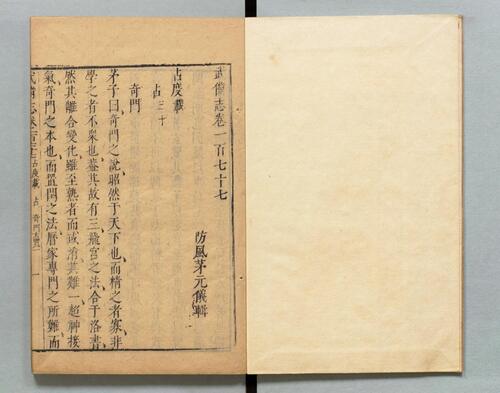 武備志卷一百七十七
防風茅元儀輯
占度載
占三十
奇門
茅子曰奇門之說昭然于天下也而精之者寡非
學之者不衆也蓋其故有三飛宮之法合于洛書
然其離合變化雖至熟者而或淆其難一超神接
氣奇門之本也而置閏之法曆家專門之所難而
武備志卷一百七十七 占度載 占 奇門 一